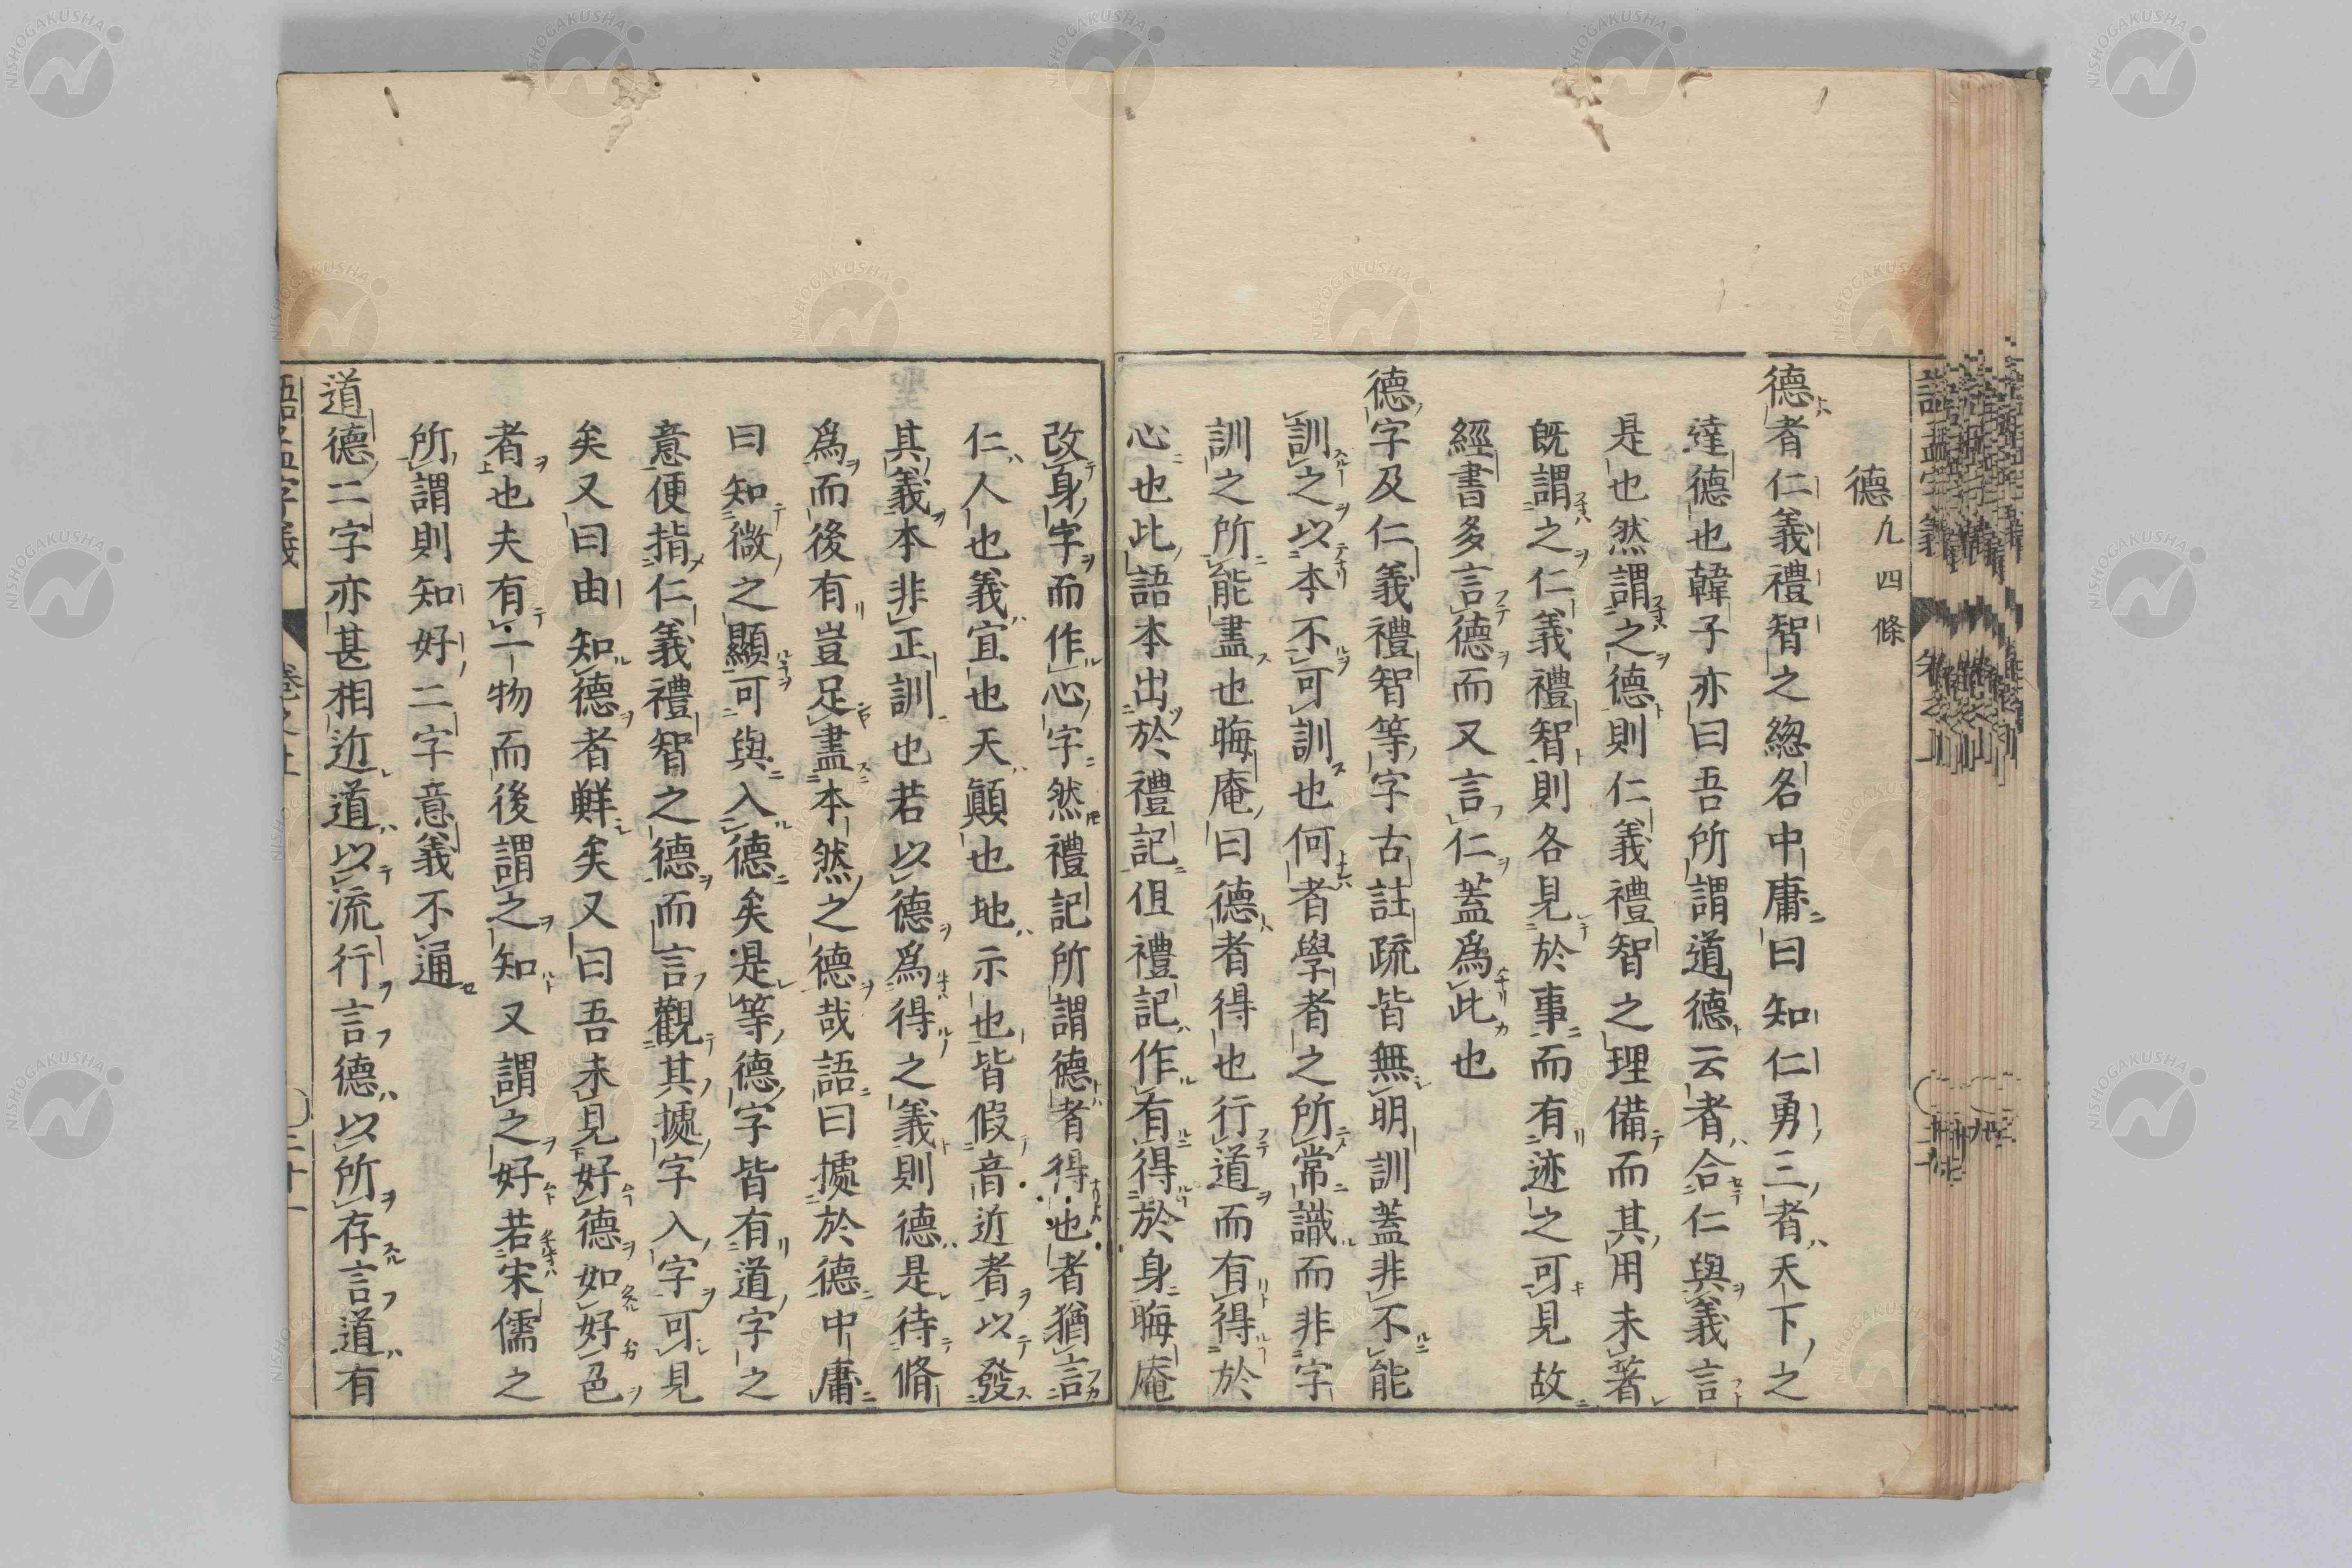 德 凢四條
德者仁義禮智之緫名中庸曰知仁勇三者天下之
達德也韓子亦曰吾所謂道德云者合仁與義言
是也然謂之德則仁義禮智之理備而其用未著
旣謂之仁義禮智則各見於事而有迹之可見故
經書多言德而又言仁蓋爲此也
德字及仁義禮智等字古註疏皆無明訓蓋非不能
訓之以本不可訓也何者學者之所常識而非字
訓之所能盡也晦庵曰德者得也行道而有得於
心也此語本出於禮記但禮記作有得於身晦庵
改身字而作心字然禮記所謂德者得也者猶言
仁人也義宜也天顚也地示也皆假音近者以發
其義本非正訓也若以德爲得之義則德是待脩
爲而後有豈足盡本然之德哉語曰㨿於德中庸
曰知微之顯可與入德矣是等德字皆有道字之
意便指仁義禮智之德而言觀其㨿字入字可見
矣又曰由知德者鮮矣又曰吾未見好德如好色
者也夫有一物而後謂之知又謂之好若宋儒之
所謂則知好二字意義不通
道德二字亦甚相近道以流行言德以所存言道有
語孟字義 卷之上 二十一
NISHOGAKUSHA